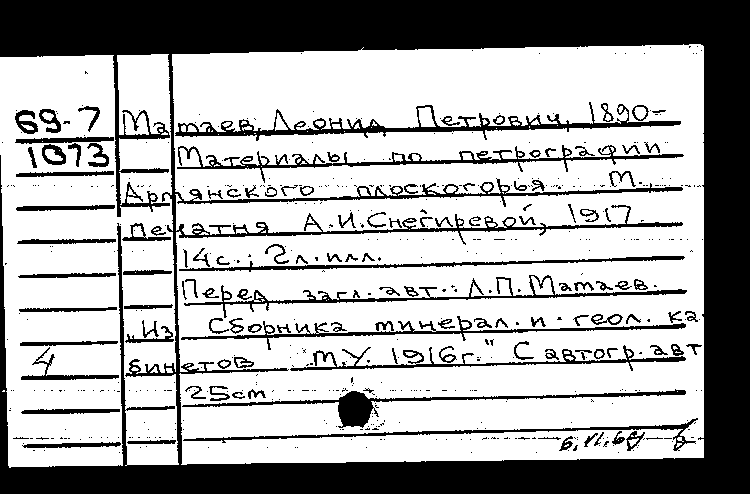 69-7 Матаев, Леонид Петрович, 1890-
1073 Материалы по петрографии
Армянского плоскогорья. М.,
печатня А.И.Снегиревой, 1917.
14с.; 2л.илл.
Перед загл. авт.: Л.П.Матаев.
„Из Сборника минерал. и геол. ка-
4 бинетов М.У. 1916г." С автогр. авт
25cm
6.VI.69